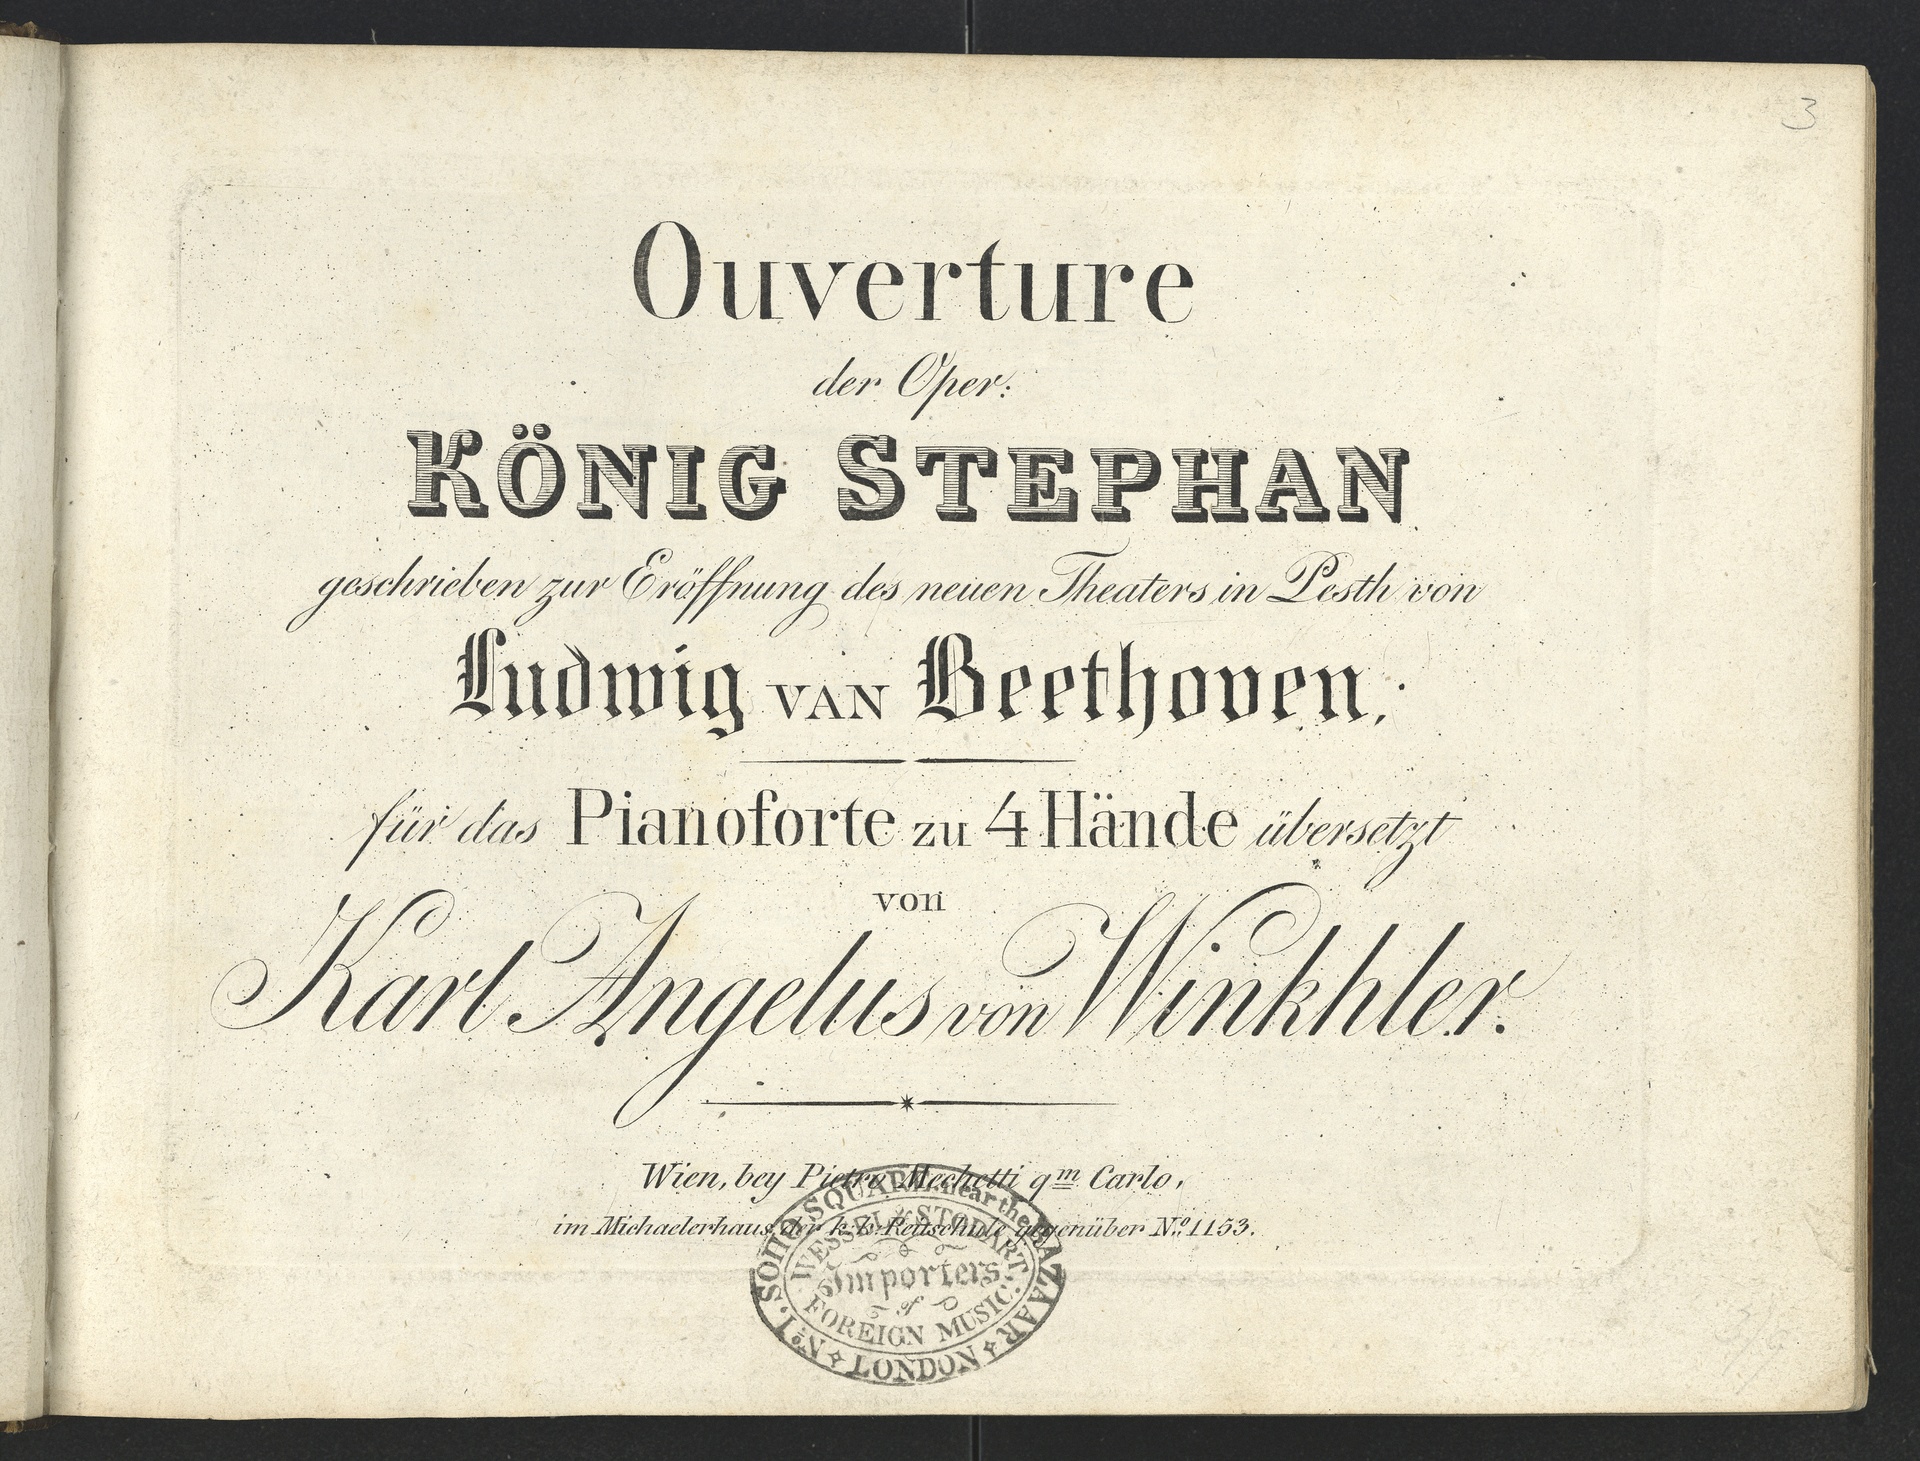 3
Ouverture
der Oper:
KÖNIG STEPHAN
geschrieben zur Eröffnung des neuen Theaters in Pesth von
Ludwig VAN Beethoven,
für das Pianoforte zu 4 Hände übersetzt
von
Karl Angelus von Winkhler.
Wien, bey Pietro Mechetti qm Carlo,
im Michaelerhaus, der k. k. Reitschule gegenüber No. 1153.
No. 1. SOHO SQUARE, near the BAZAAR
WESSEL & STODART
Importers
of
FOREIGN MUSIC.
LONDON